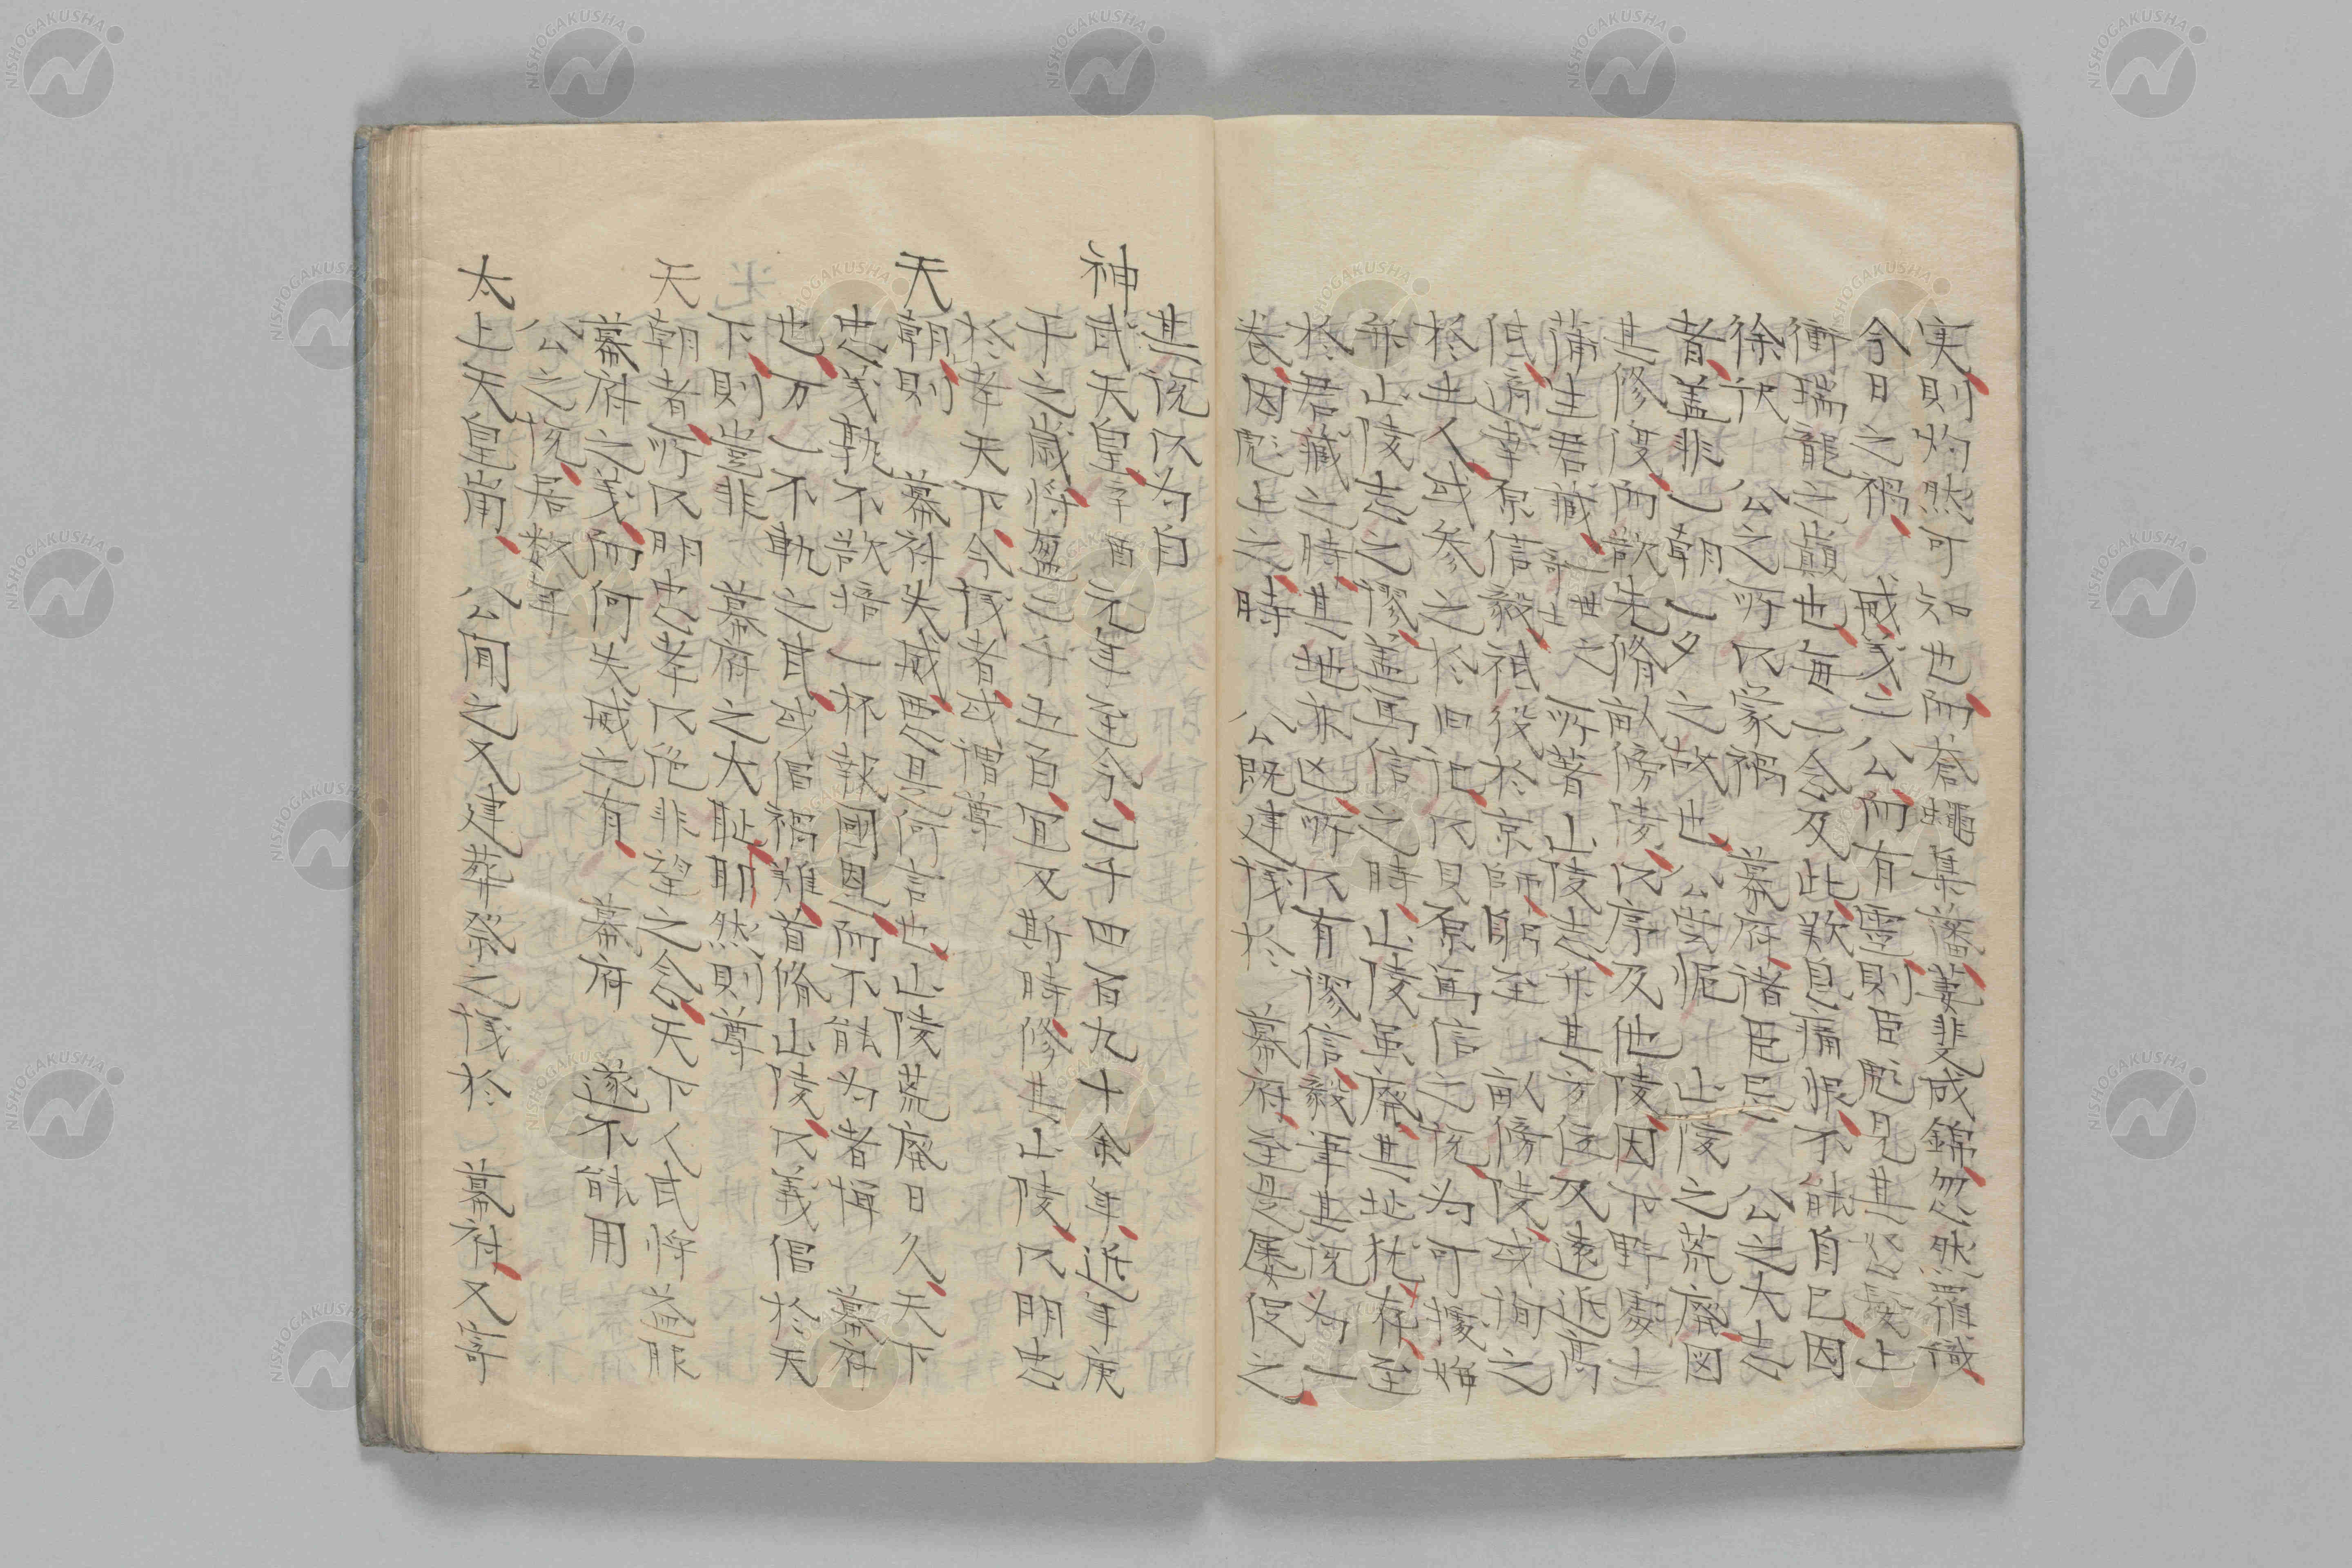 実則灼然可知也而蒼蠅集藩萋斐成錦忽然羅織
今日之禍 威義二公而有霊則臣彪見其怒髪上
衝瑞龍之巓也毎一念及此歎息痛恨不能自已因
徐択 公之所以蒙禍 幕府諸臣忌 公之大志
者蓋非一朝一夕之故也 公嘗慨 山陵之荒廃図
其修復而欲先脩畝傍陵以序及他陵因下野処士
蒲生君蔵之所著山陵志弁其方位及遠近高
低済幸原信毅祗役於京師躬至 畝傍陵或詢之
於土人或参之於旧記以貝原篤信之説為可據始
弁山陵志之謬蓋篤信之時山陵雖廃其址猶存至
於君蔵之時其地亦凶所以有謬信毅筆其説為一
巻因彪上之時 公既建議於 幕府至是属促之
其説以為自
神武天皇辛酉元年迄今二千四百九十余年近年庚
子之歳将盈二千五百宜及斯時修其山陵以明忠
於孝天下今議者或謂尊
天朝則 幕府失威悪是何言也山陵荒廃日久天下
忠義孰不欲掊一杯報國恩而不能為者憚 幕府
也万一不軌之甚或倡禍難首脩山陵以義倡於天
下則豈非 幕府之大耻耶然則尊
天朝者所以明忠孝以絶非望之念天下人武将益服
幕府之義而何失威之有 幕府 遂不能用
公之説居数年
太上天皇崩 公聞之又建葬祭之議於 幕府又寄
NISHOGAKUSHA